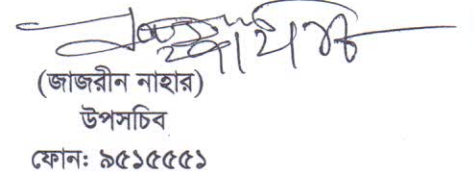 (জাজরীন নাহার)
উপসচিব
ফোন: ৯৫১৫৫৫১